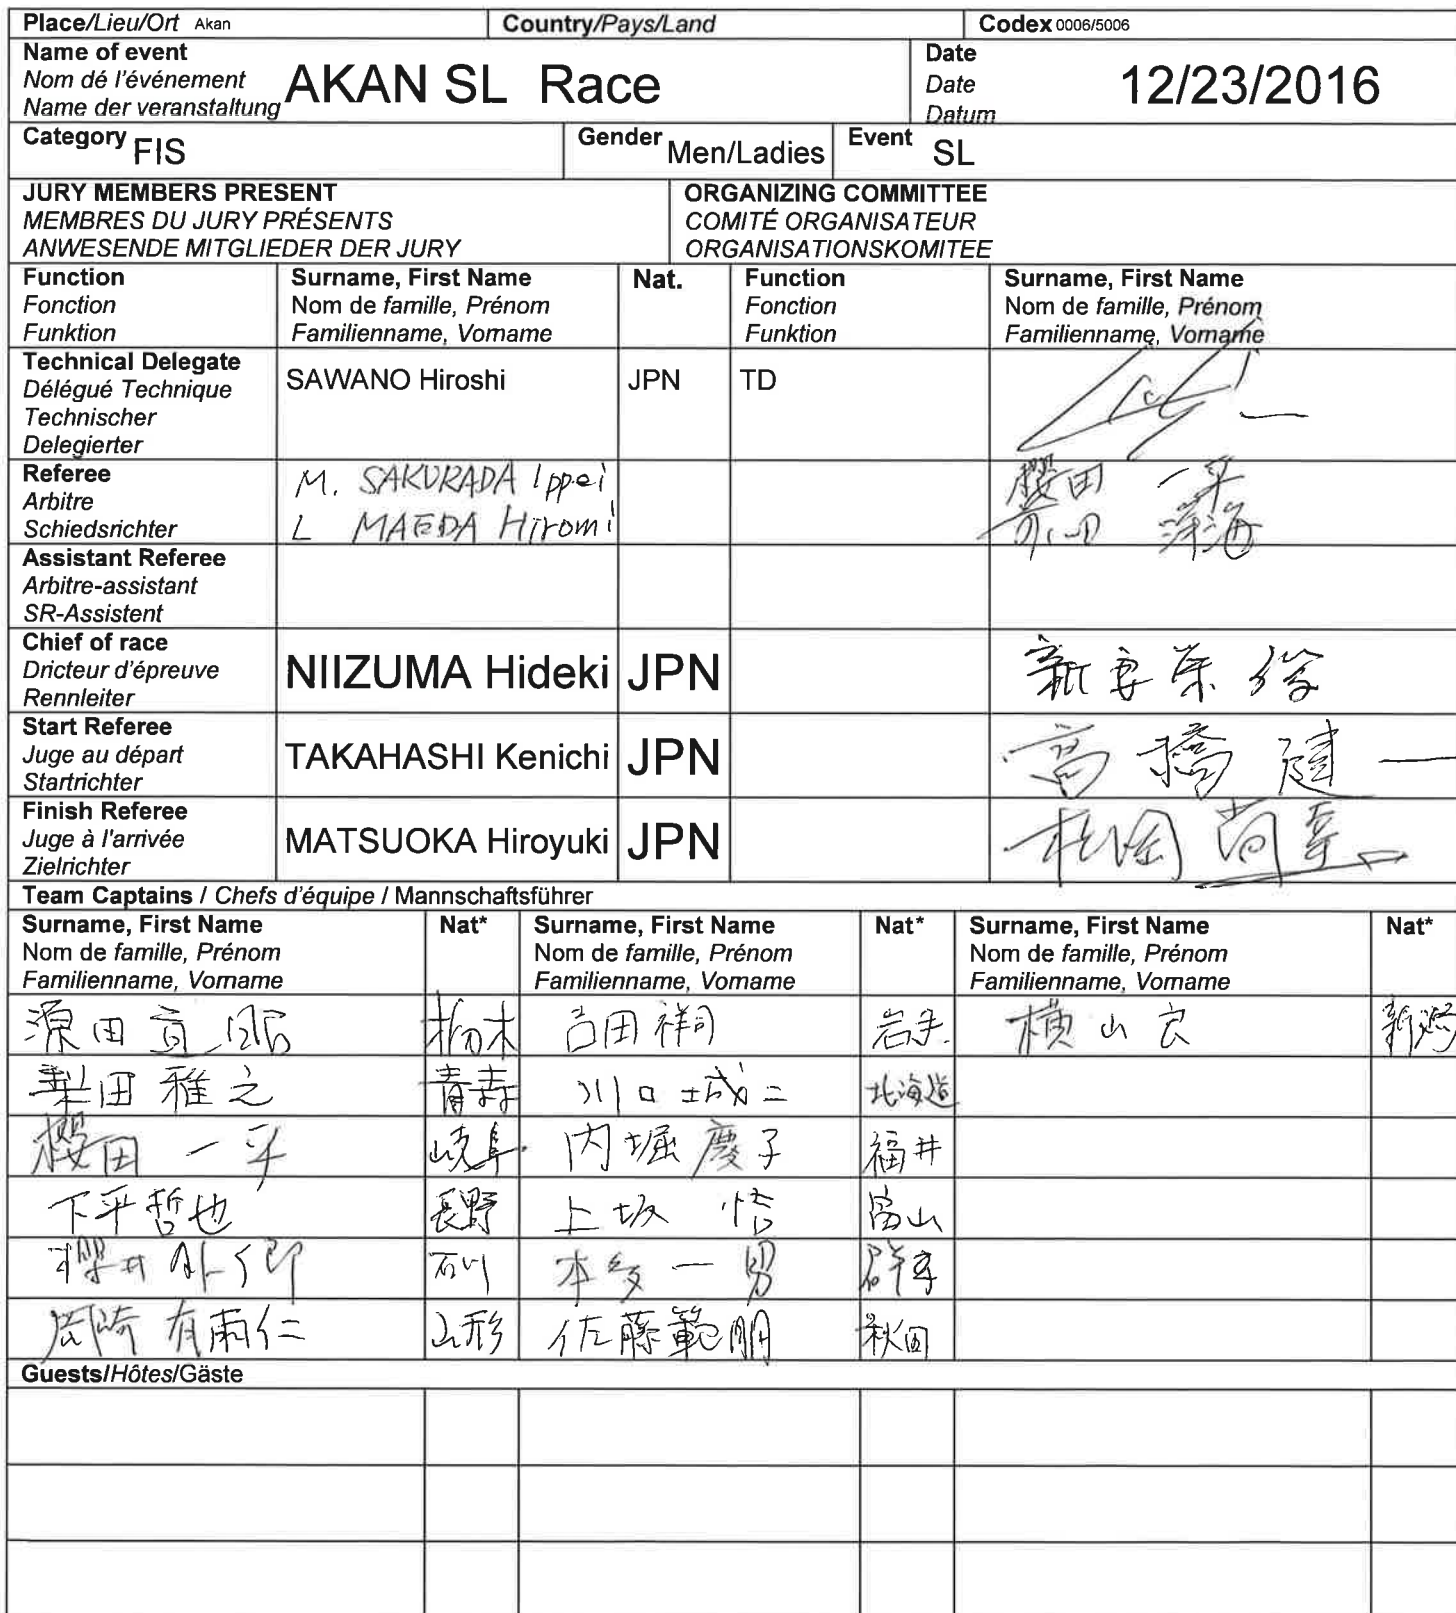 Place/Lieu/Ort Akan Country/Pays/Land Codex 0006/5006
Name of event
Nom dé l'événement
Name der veranstaltung
AKAN SL Race
Date
Date
Datum
12/23/2016
Category FIS Gender Men/Ladies Event SL
JURY MEMBERS PRESENT
MEMBRES DU JURY PRÉSENTS
ANWESENDE MITGLIEDER DER JURY
ORGANIZING COMMITTEE
COMITÉ ORGANISATEUR
ORGANISATIONSKOMITEE
Function
Fonction
Funktion
Surname, First Name
Nom de famille, Prénom
Familienname, Vorname
Nat.
Function
Fonction
Funktion
Surname, First Name
Nom de famille, Prénom
Familienname, Vorname
Technical Delegate
Délégué Technique
Technischer
Delegierter
SAWANO Hiroshi JPN TD
Referee
Arbitre
Schiedsrichter
M. SAKURADA Ippei
L MAEDA Hiromi
櫻田 一平
前田 洋海
Assistant Referee
Arbitre-assistant
SR-Assistent
Chief of race
Dricteur d'épreuve
Rennleiter
NIIZUMA Hideki JPN
新妻
Start Referee
Juge au départ
Startrichter
TAKAHASHI Kenichi JPN
高橋 健一
Finish Referee
Juge à l'arrivée
Zielrichter
MATSUOKA Hiroyuki JPN
松岡 尚幸
Team Captains / Chefs d'équipe / Mannschaftsführer
Surname, First Name
Nom de famille, Prénom
Familienname, Vorname
Nat*
Surname, First Name
Nom de famille, Prénom
Familienname, Vorname
Nat*
Surname, First Name
Nom de famille, Prénom
Familienname, Vorname
Nat*
源田 栃木 吉田 祥司 岩手 横山 良 新潟
梨田 雅之 青森 川口 城二 北海道
櫻田 一平 岐阜 内堀 慶子 福井
下平哲也 長野 上坂 悟 富山
櫻井 石川 本多 一男 群馬
岡崎 有雨仁 山形 佐藤範明 秋田
Guests/Hôtes/Gäste